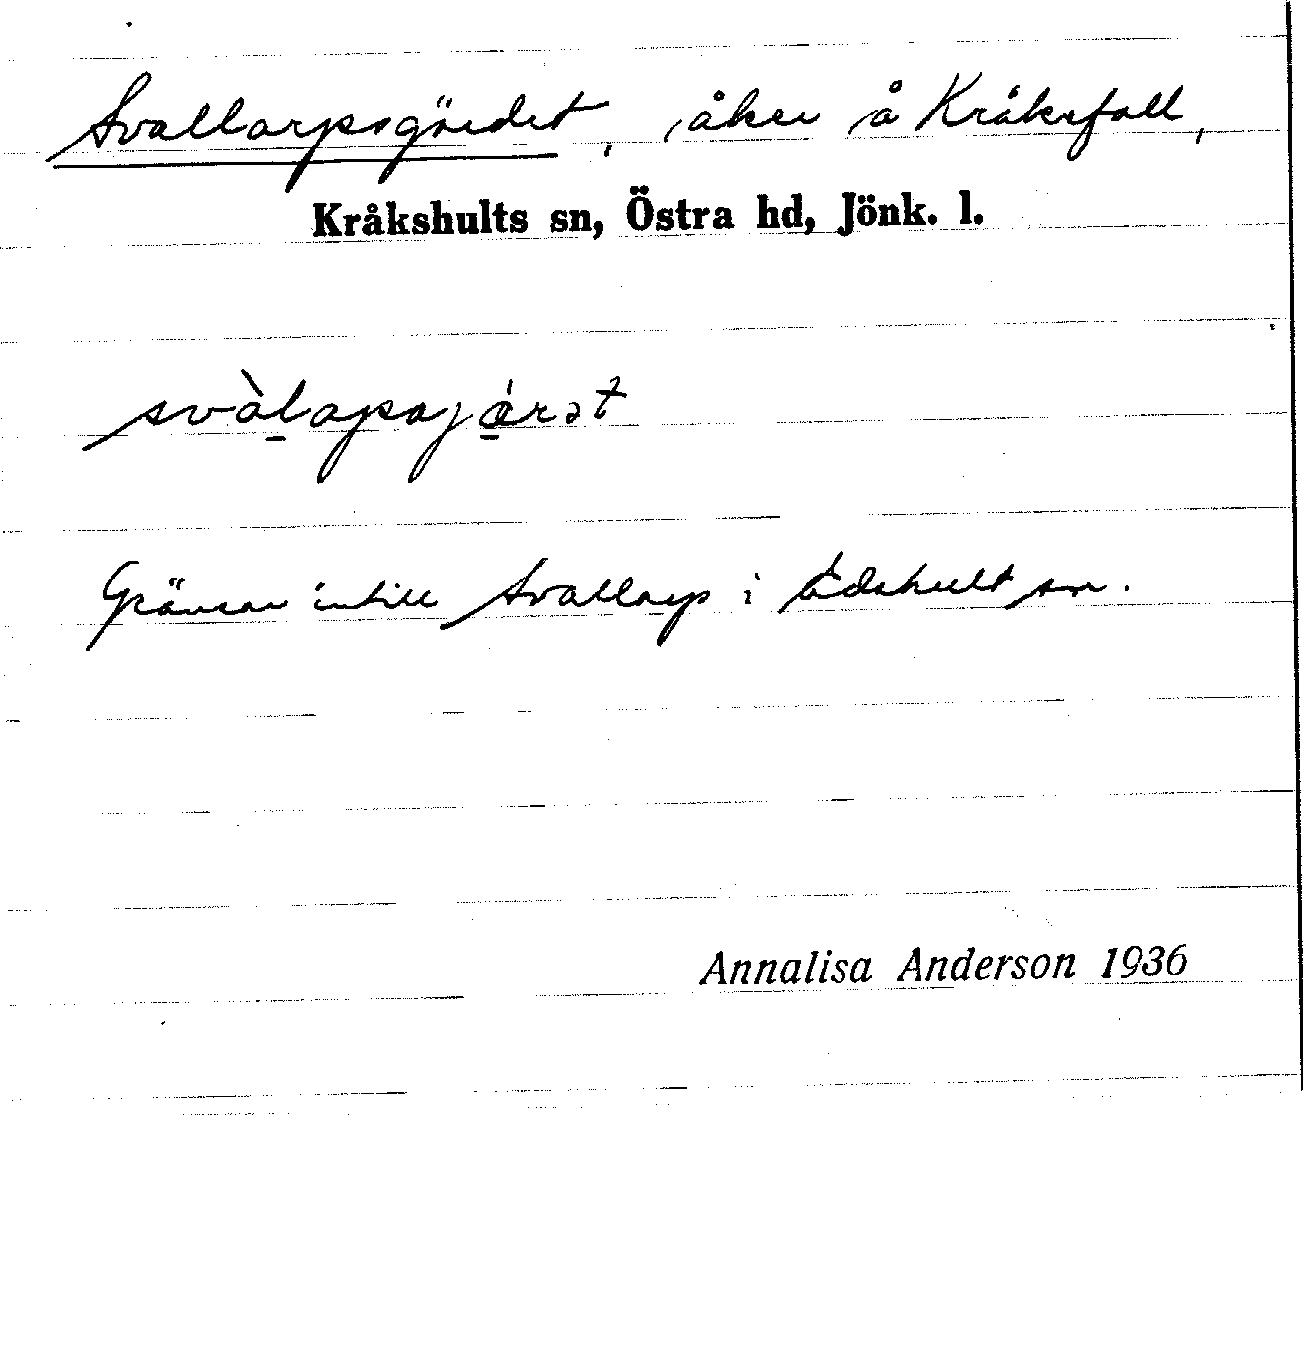 Svallarpsgöedet, åker å Kråksfall,
Kråkshults sn, Östra hd, Jönk. l.
svàl̲apsjǿ̲rət
Gränsar intill Svallarp i Edshult sn.
Annalisa Anderson 1936